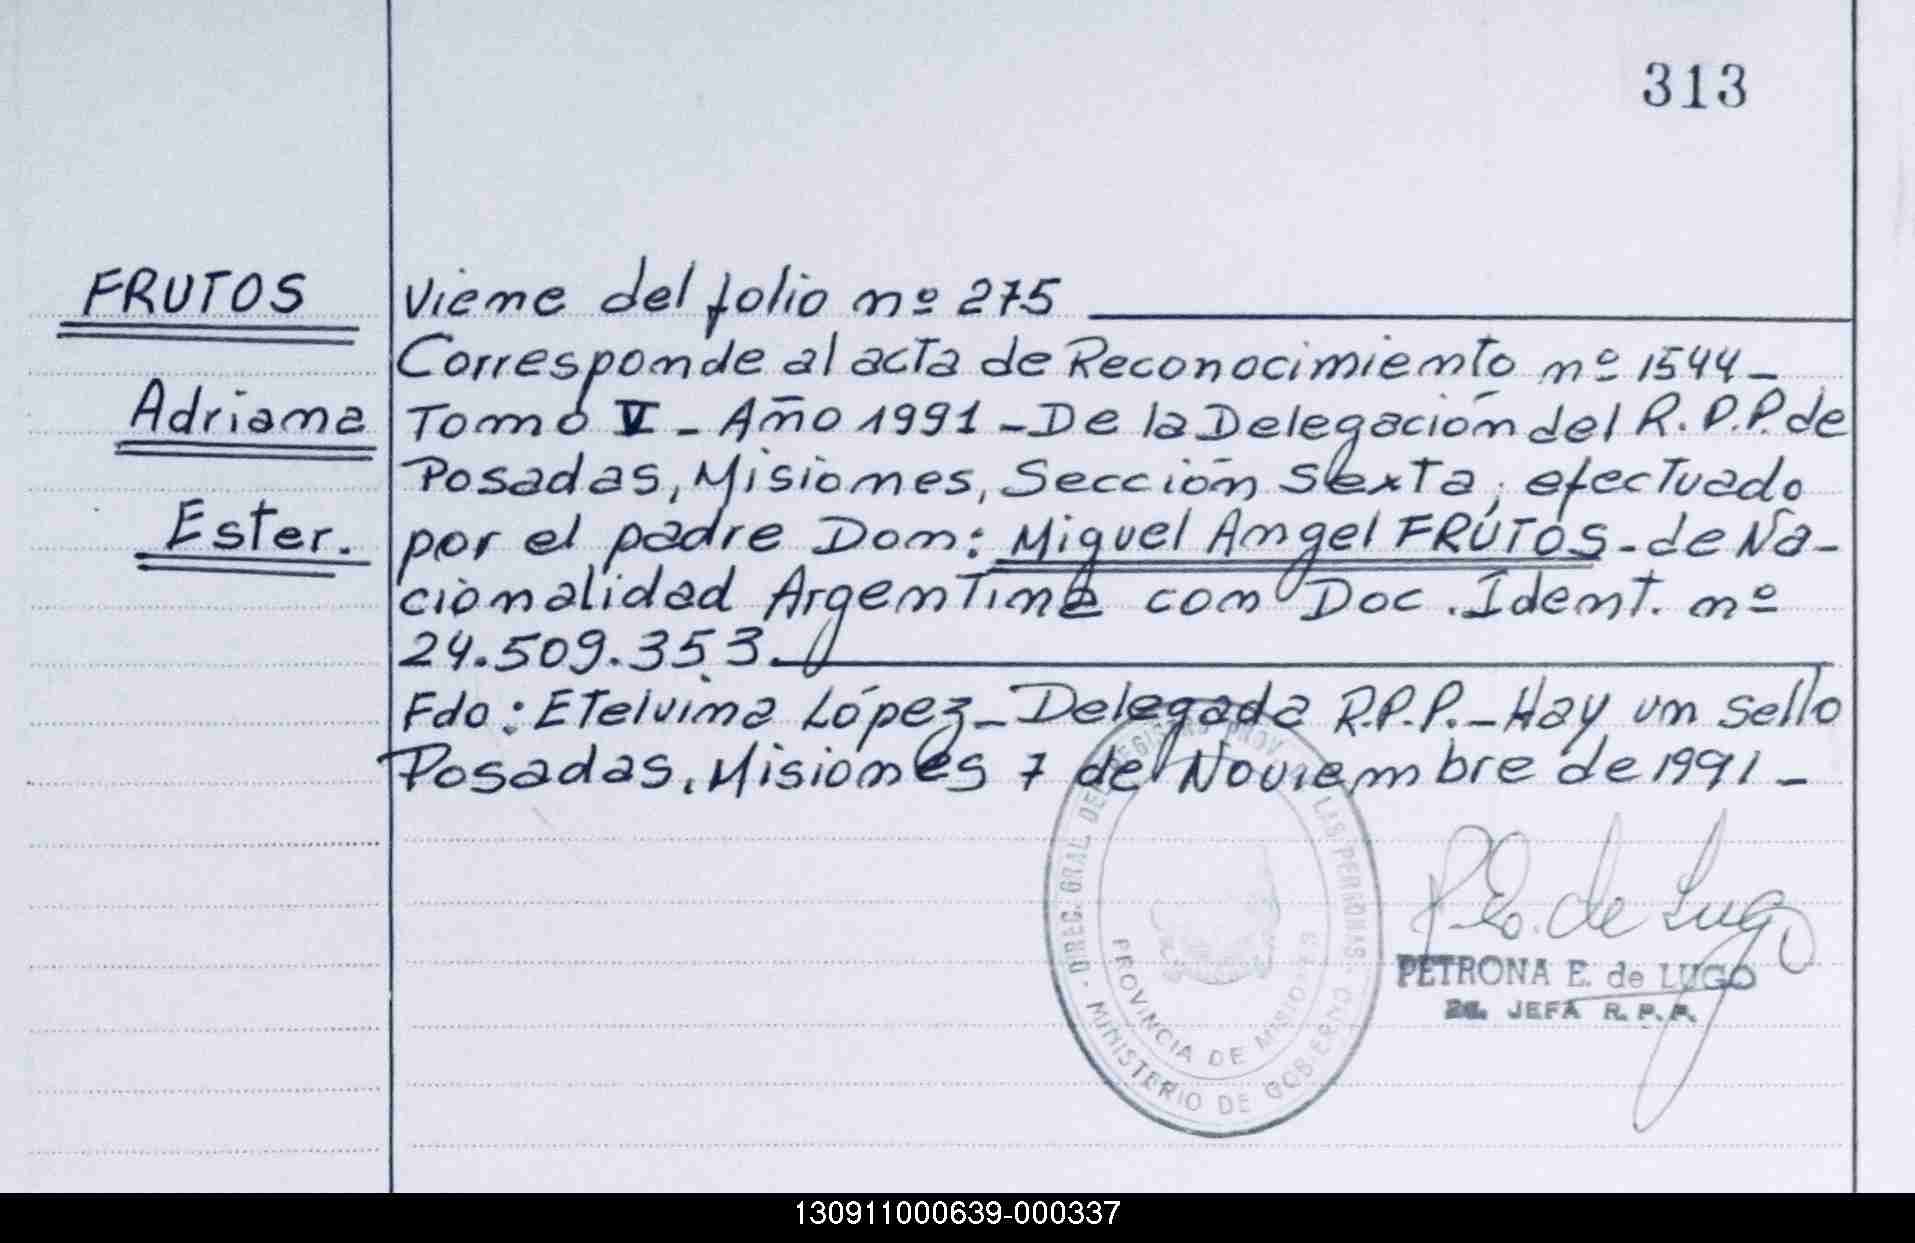 313
FRUTOS
Adriana
Ester.
Viene del folio nº 275
Corresponde al acta de Reconocimiento nº 1544-
Tomo V - Año 1991 - De la Delegación del R.P.P. de
Posadas, Misiones, Sección Sexta, efectuado
por el padre Don: Miguel Angel FRUTOS - de Na-
cionalidad Argentina con Doc. Ident. nº
24.509.353.
Fdo: Etelvina López - Delegada R.P.P. - Hay un sello
Posadas, Misiones 7 de Noviembre de 1991 -
DIREC. GRAL. DEL REGISTRO PROV. LAS PERSONAS
MINISTERIO DE GOBIERNO
PROVINCIA DE MISIONES
P. E. de Lugo
PETRONA E. de LUGO
JEFA R.P.P.
130911000639-000337